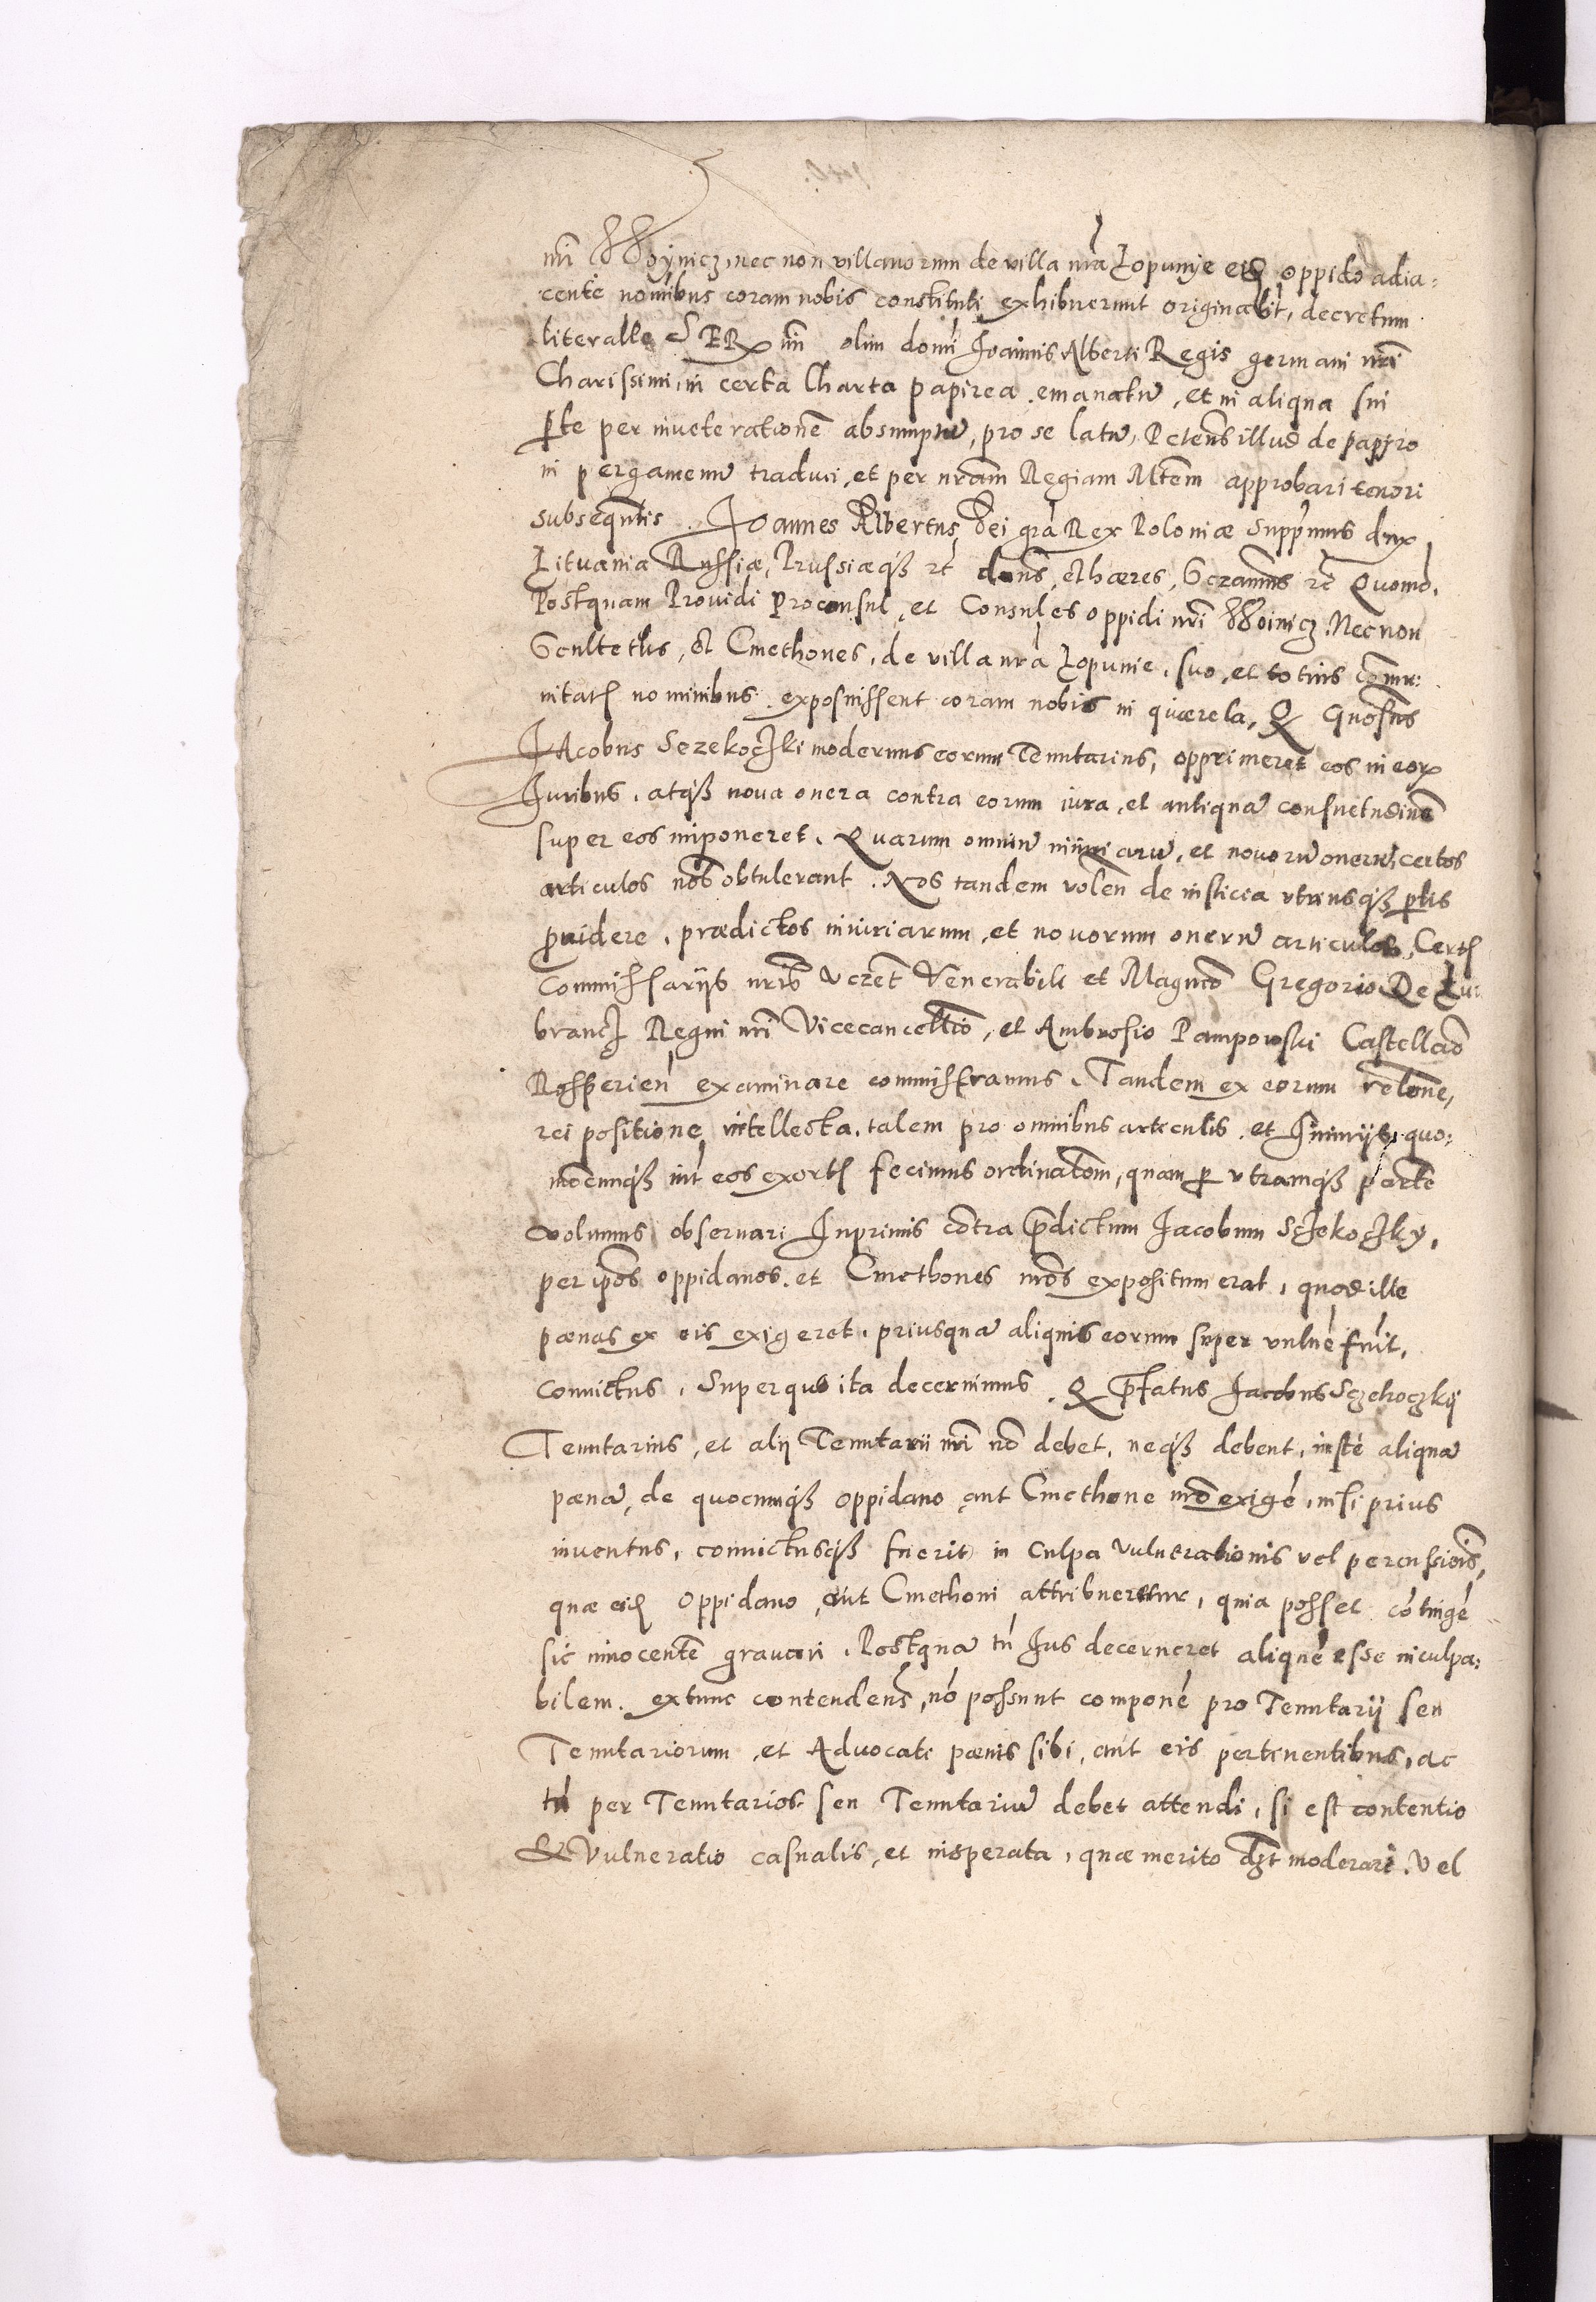 nri Woynicz, nec non villanorum de villa nra Lopunye eid oppido adia:
cente nomibus coram nobis constituti exhibuerunt originalit, decretum
literalle SER nri olim domi Ioannis Alberti Regis germani nri
Charissimi, in certa Charta papirea emanatu, et in aliqua sui
pte per inveterationem absumptu, pro se latu, Petens illud de papiro
in pergamenu traduci, et per nram Regiam Mtem approbari tenori
subsequentis. Ioannes Albertus Dei gra Rex Poloniæ Suppremus dux
Lituania Russiæ, Prussiæq3 rc dons, et hæres, Gzamus rc Quomo.
Postquam Providi Proconsul, et Consules oppidi nri Woinicz. Nec non
Scultetus, et Cmethones, de villa nra Lopunie, suo, et totius comu:
nitatis nominibus exposuissent coram nobis in quærela, Q Gnosus
Iacobus Sezekoczki modernus eorum Tenutarius, opprimeret eos in eorx
Iuribus, atq3 nova onera contra eorum iura, et antiqua consuetudine
super eos imponeret. Quarum omniu iniuriaru, et novoru oneru, certos
articulos nobs obtulerant. Nos tandem volen de insticia utriusq3 ptis
pvidere, prædictos iniuriarum, et novorum oneru articulos, Certis
Commissariis nris vczet Venerabili et Magnco Gregorio De Lu:
brancz Regni nri Vicecancellio, et Ambrosio Pampowski Castellao
Rossperien examinare commisseramus. Tandem ex eorum relone,
rei positione intellecta, talem pro omnibus articulis, et Iniuriis quo:
modcunq3 int eos exortis fecimus ordinatom, quam p utramq3 parte
volumus observari Inprimis cotra pdictum Iacobum Sczekoczky,
per ipos oppidanos et Cmethones nros expositum erat, quod ille
pænas ex eis exigeret, priusqua aliquis eorum super vulne fuit,
Convictus, Super quo ita decernimus. Q pfatus Iacobus Sczekoczkij
Tenutarius, et alij Tenutarii nri no debet, neq3 debent, inste aliqua
pæna, de quocunq3 oppidano aut Cmethone nro exige, nisi prius
inventus, convictusq3 fuerit in Culpa vulnerationis vel percussiois,
quæ eid Oppidano aut Cmethoni attribueretur, quia posset cotinge
sic innocente gravari. Postqua tn Ius decerneret alique esse inculpa:
bilem. extunc contendens, no possunt compone pro Tenutarij seu
Tenutariorum et Advocati pænis sibi, aut eis pertinentibus, ac
tn per Tenutarios seu Tenutariu debet attendi, si est contentio
et Vulneratio casualis, et insperata, quæ merito dzt moderari. Vel